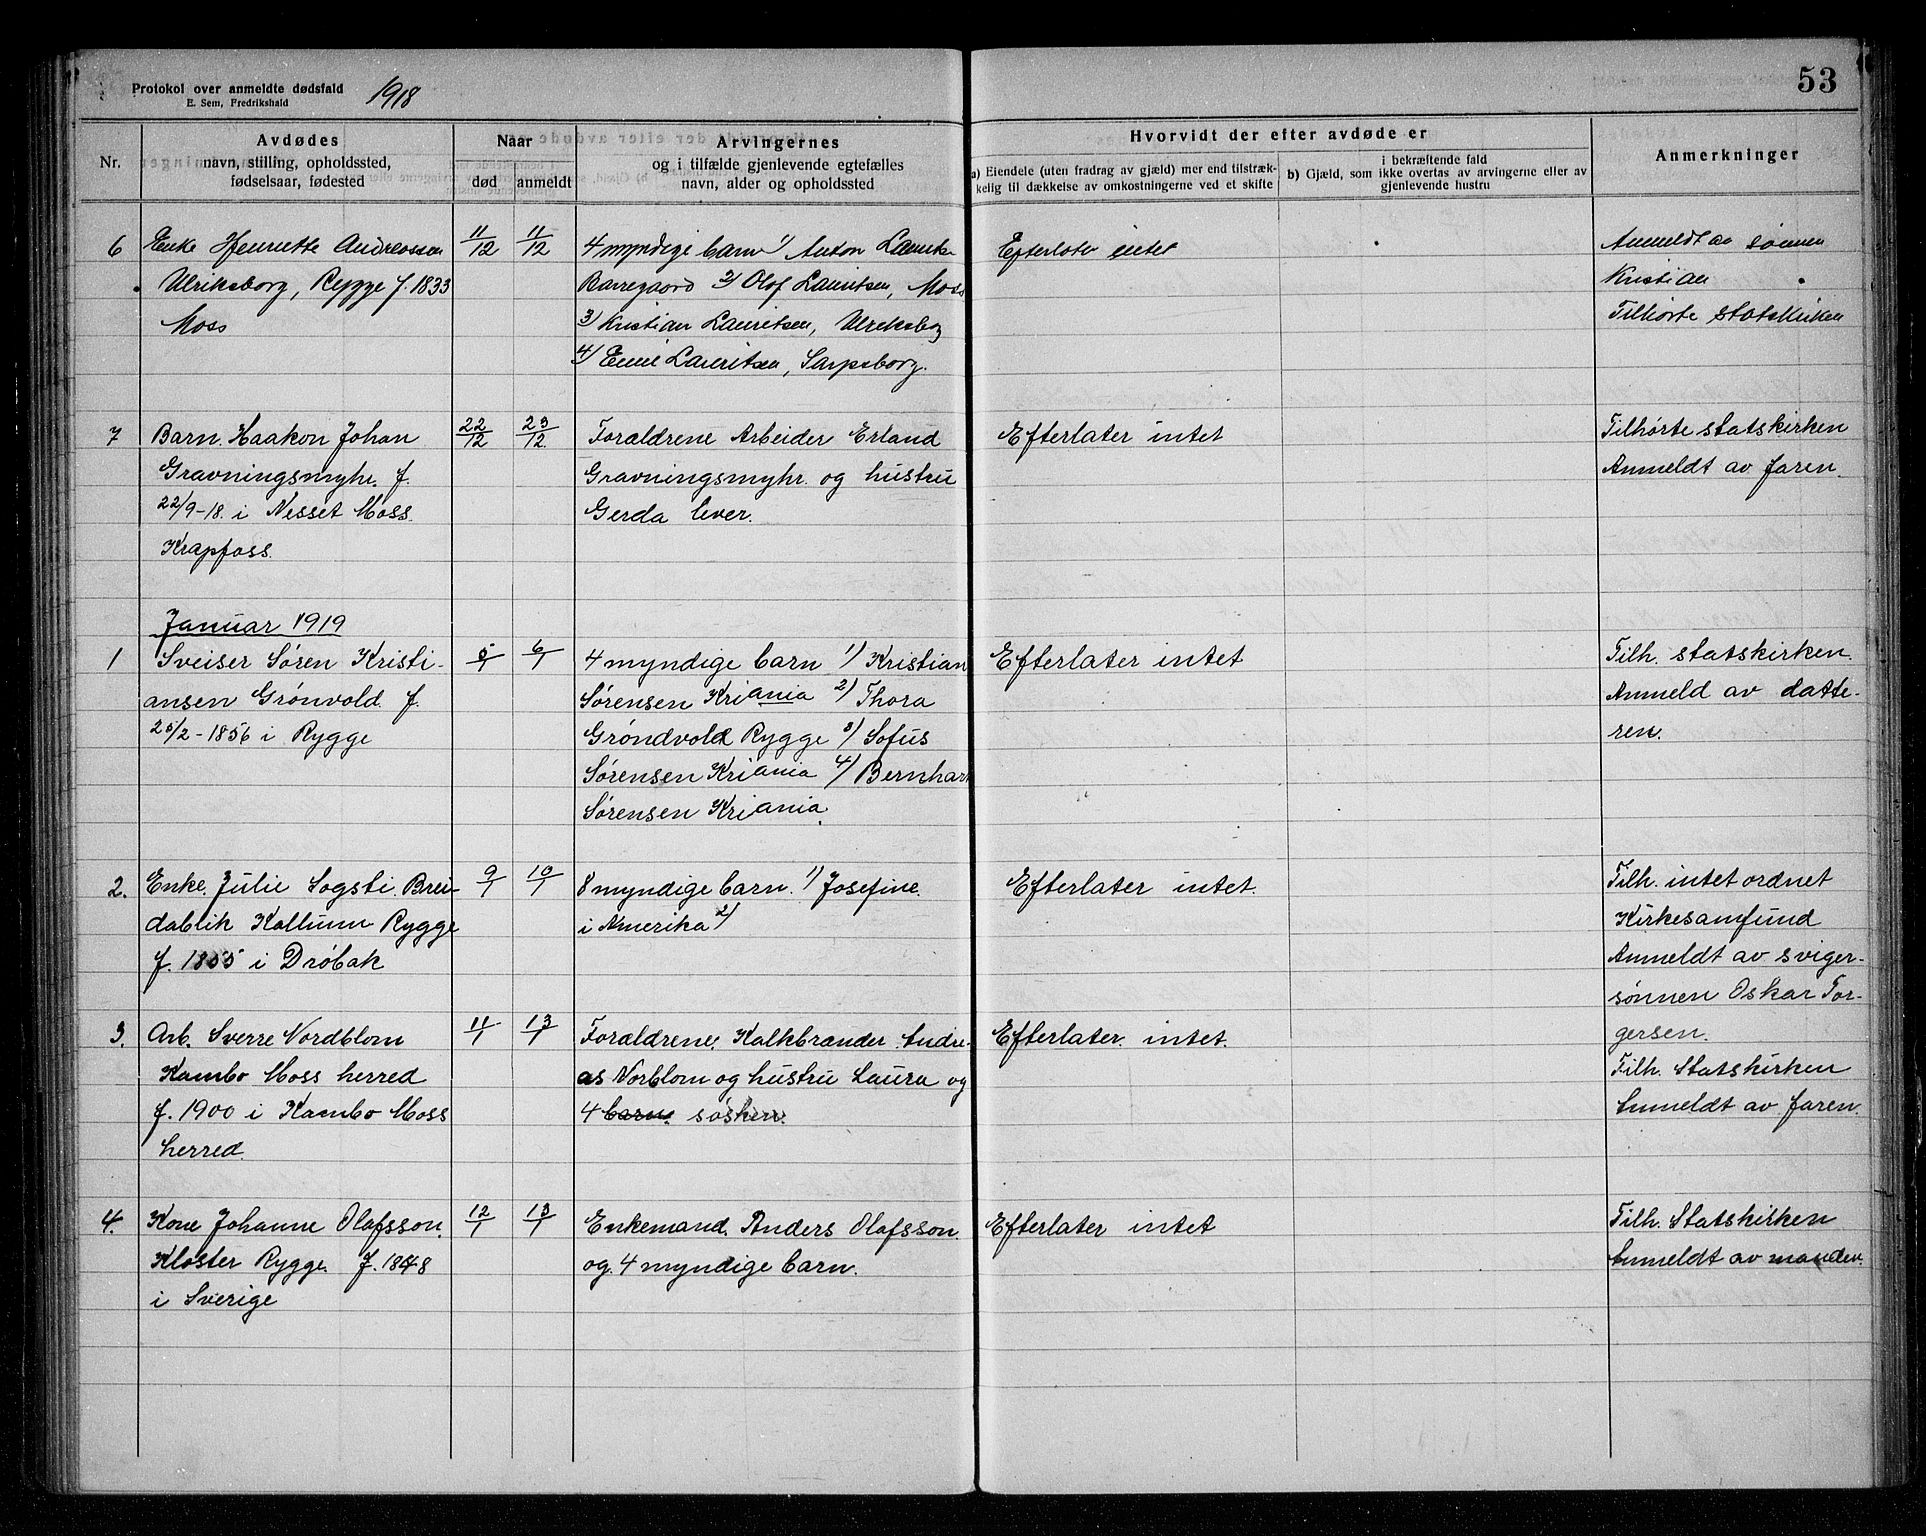 Protokol over anmeldte dødsfald 1918
E. Sem, Fredrikshald
53
Nr.
Avdødes
navn, stilling, opholdssted,
fødselsaar, fødested
Naar
død
anmeldt
Arvingernes
og i tilfælde gjenlevende egtefælles
navn, alder og opholdssted
Hvorvidt der efter avdøde er
a) Eiendele (uten fradrag av gjæld) mer end tilstræk-
kelig til dækkelse av omkostningerne ved et skifte
i bekræftende fald
b) Gjæld, som ikke overtas av arvingerne eller av
gjenlevende hustru
Anmerkninger
6
Enke Henriette Andreassen
Ulriksborg, Rygge f. 1833
Moss
11/12
11/12
4 myndige barn 1) Anton
2) Olof Lauritsen, Moss
3) Kristian Lauritsen, Ulriksborg
4) Emil Lauritsen, Sarpsborg.
Efterlater intet
Anmeldt av sønnen
Kristian
Tilhørte statskirken
7
Barn. Haakon Johan
Gravningsmyhr. f.
22/9-18. i Nesset Moss.
Krapfoss.
22/12
23/12
Forældrene Arbeider Erland
Gravningsmyhr. og hustru
Gerda lever.
Efterlater intet
Tilhørte statskirken
Anmeldt av faren.
Januar 1919
1
Sveiser Søren Kristi-
ansen Grønvold. f.
25/2-1856 i Rygge
5/1
6/1
4 myndige barn 1) Kristian
Sørensen Kriania 2) Thora
Grøndvold Rygge 3) Sofus
Sørensen Kriania 4) Bernhard
Sørensen Kriania.
Efterlater intet
Tilh. statskirken.
Anmeld av datte-
ren.
2.
Enke. Julie Sogsti. Brei-
dablik Kallum Rygge
f. 1855 i Drøbak
9/1
10/1
8 myndige barn. 1) Josefine.
i Amerika 2)
Efterlater intet.
Tilh. intet ordnet
Kirkesamfund
Anmeldt av sviger-
sønnen Oskar Tor-
gersen.
3.
Arb. Sverre Nordblom
Kambo Moss herred
f. 1900 i Kambo Moss
herred.
11/1
13/1
Forældrene. Kalkbrænder. Andre-
as Norblom og hustru Laura og
4 barn. søsken.
Efterlater. intet.
Tilh. Statskirken
Anmeldt av faren.
4.
Kone Johanne Olafsson.
Kloster Rygge. f. 1848
i Sverige
12/1
13/1
Enkemand. Anders Olafsson.
og. 4 myndige barn.
Efterlater intet
Tilh. Statskirken
Anmeldt av manden.